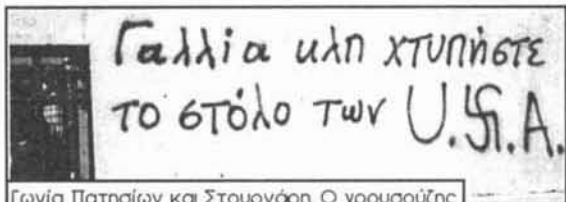 Γαλλία κλπ χτυπήστε
το στόλο των U.卐.A.
Γωνία Πατησίων και Στουρνάρη. Ο χρυσούζης